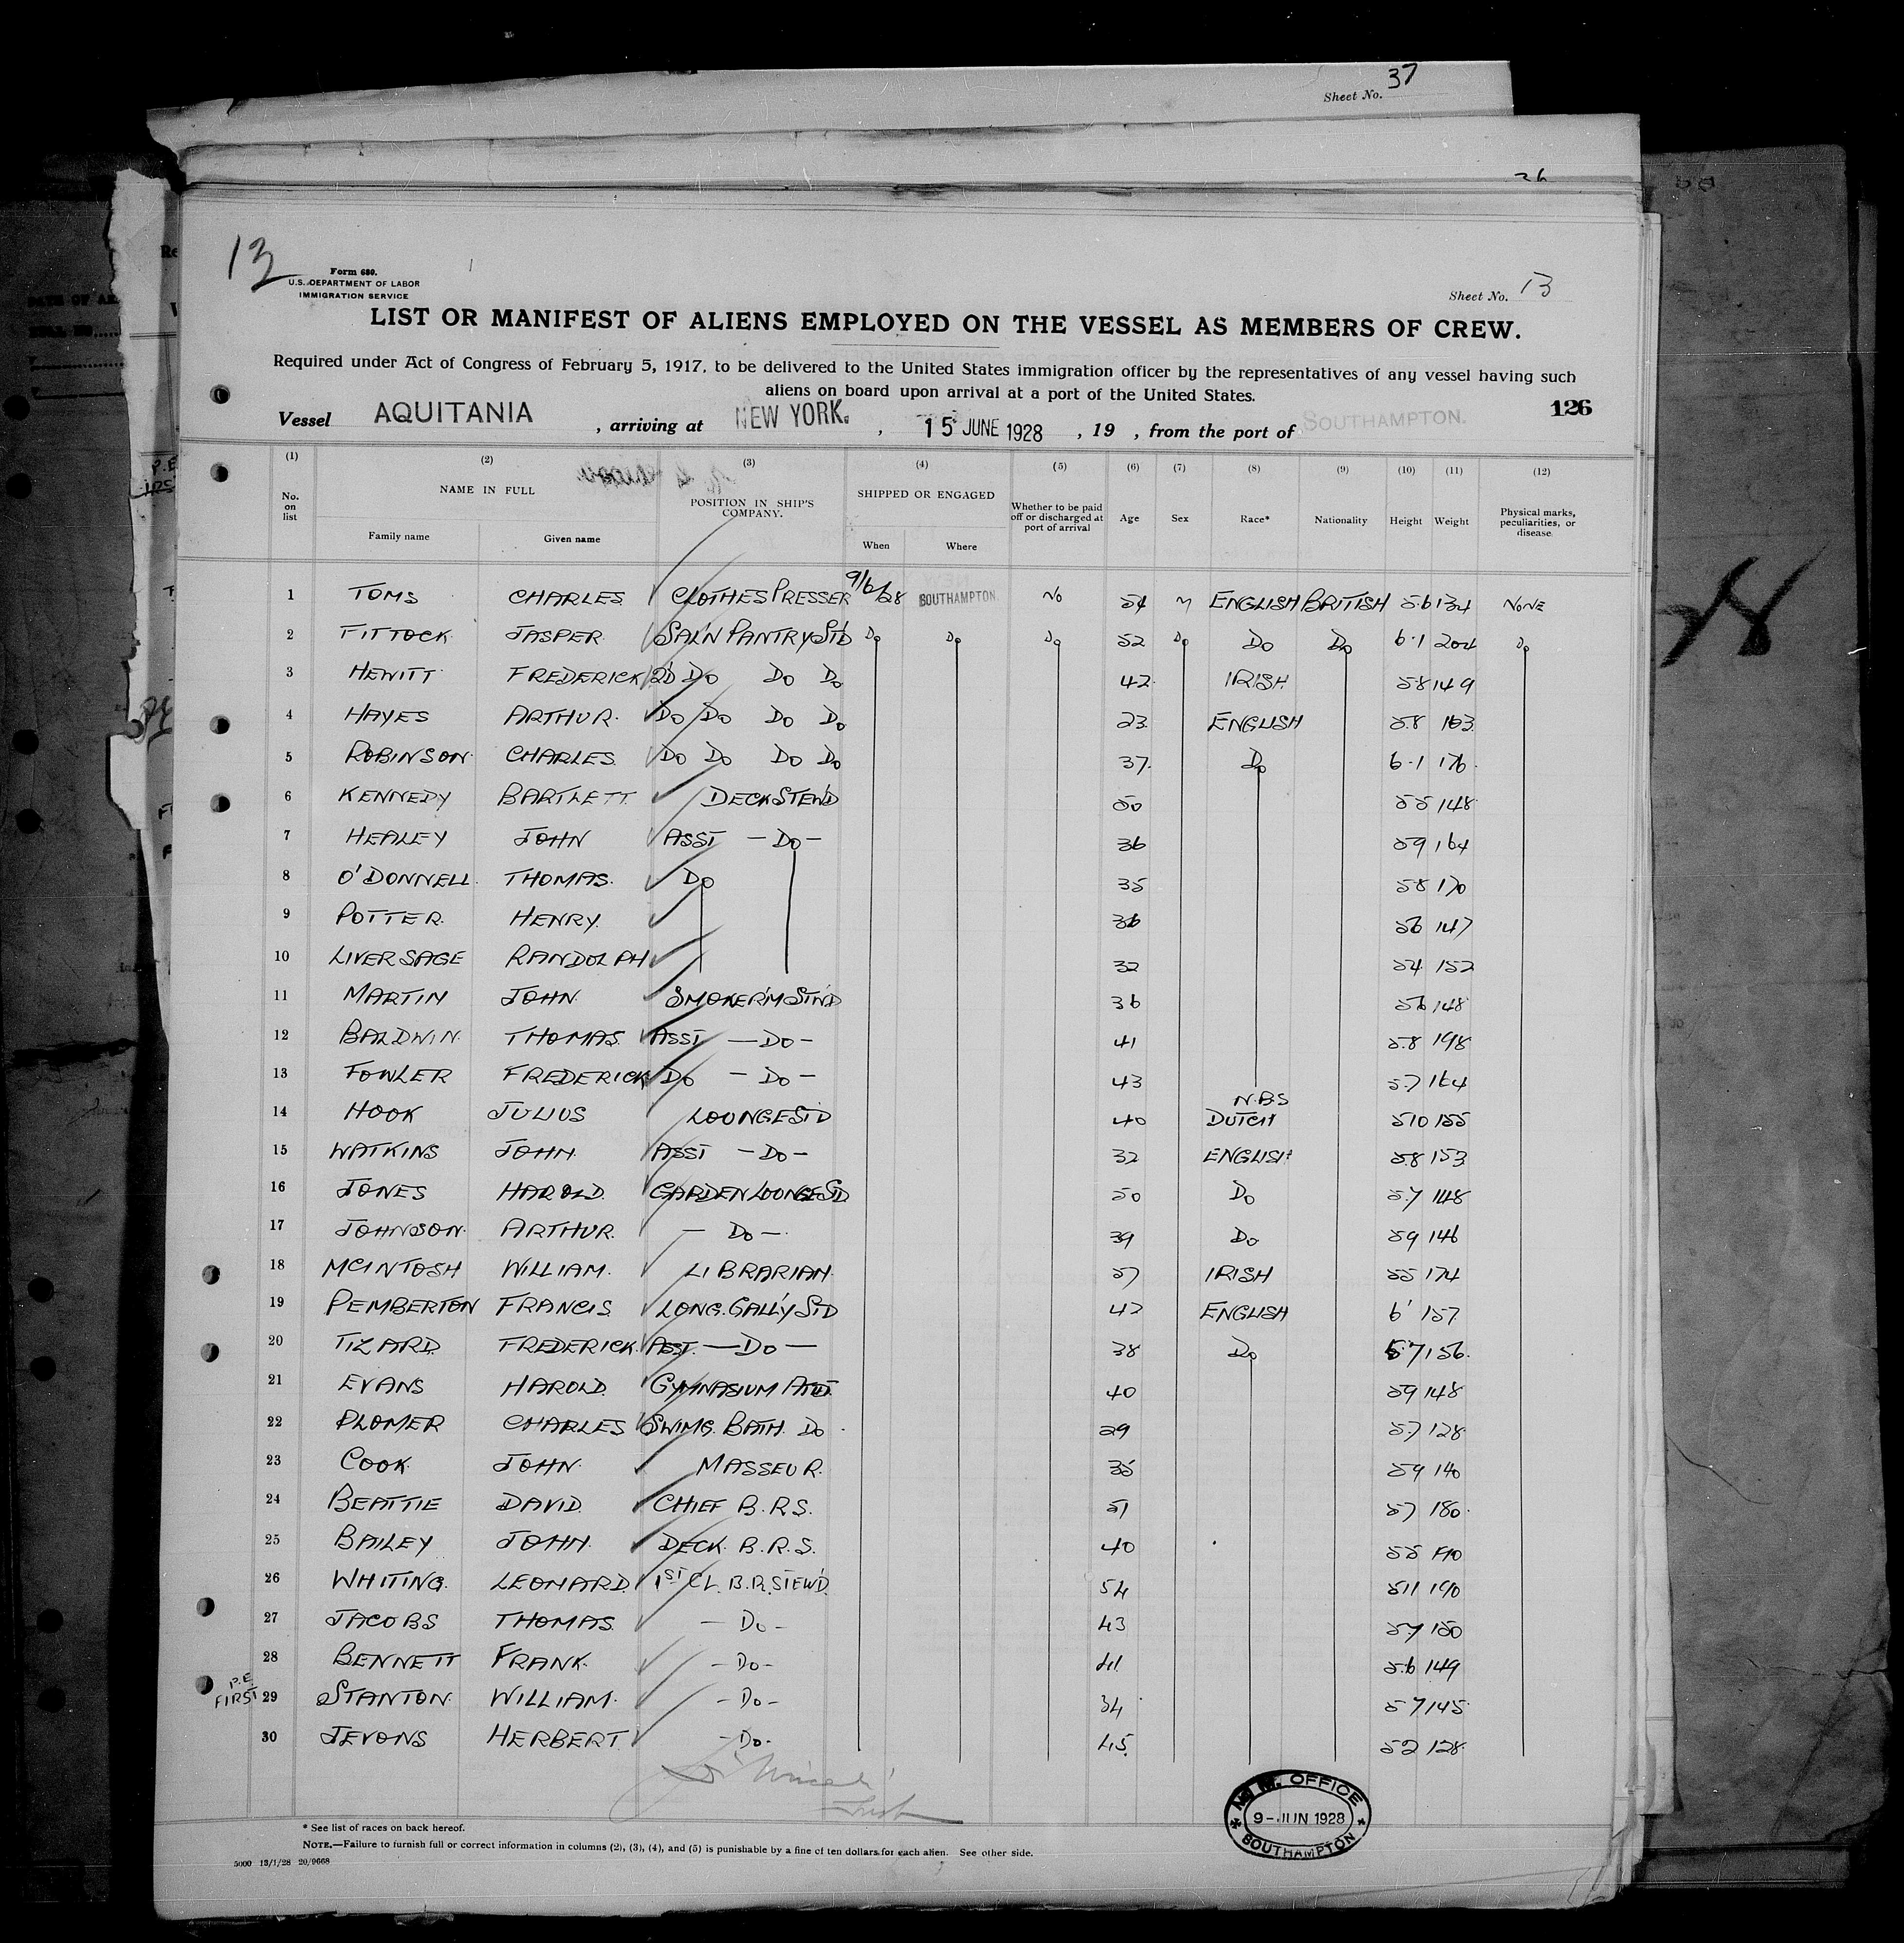 Sheet No. 37
26
13
Form 680.
U.S. DEPARTMENT OF LABOR
IMMIGRATION SERVICE
Sheet No. 13
LIST OR MANIFEST OF ALIENS EMPLOYED ON THE VESSEL AS MEMBERS OF CREW.
Required under Act of Congress of February 5, 1917, to be delivered to the United States immigration officer by the representatives of any vessel having such
aliens on board upon arrival at a port of the United States.
126
Vessel AQUITANIA , arriving at NEW YORK. , 15 JUNE 1928 , 19 , from the port of SOUTHAMPTON.
(1) (2) (3) (4) (5) (6) (7) (8) (9) (10) (11) (12)
No. on list NAME IN FULL POSITION IN SHIP'S COMPANY. SHIPPED OR ENGAGED Whether to be paid off or discharged at port of arrival Age Sex Race* Nationality Height Weight Physical marks, peculiarities, or disease
Family name Given name When Where
1 TOMS CHARLES CLOTHES PRESSER 9/6/28 SOUTHAMPTON No 54 M ENGLISH BRITISH 5.6 134 NONE
2 FITTOCK JASPER SAL'N PANTRY ST'D Do Do Do 52 Do Do Do 6.1 204 Do
3 HEWITT FREDERICK 2D Do Do Do 42 IRISH 58 149
4 HAYES ARTHUR. Do Do Do Do 23 ENGLISH 5.8 163
5 ROBINSON CHARLES Do Do Do Do 37 Do 6.1 176
6 KENNEDY BARTLETT DECK STEW'D 50 55 148
7 HEALEY JOHN ASST — Do — 36 59 164
8 O'DONNELL THOMAS. Do 35 58 170
9 POTTER. HENRY. 36 56 147
10 LIVERSAGE RANDOLPH 32 54 152
11 MARTIN JOHN SMOKER'M ST'W'D 36 56 148
12 BALDWIN THOMAS ASST — Do — 41 5.8 198
13 FOWLER FREDERICK Do — Do — 43 5.7 164
N.B.S
14 HOOK JULIUS LOUNGE ST'D 40 DUTCH 510 155
15 WATKINS JOHN ASST — Do — 32 ENGLISH 5.8 153
16 JONES HAROLD. GARDEN LOUNGE S'D 50 Do 5.7 148
17 JOHNSON ARTHUR. — Do — 39 Do 59 146
18 MCINTOSH WILLIAM. LIBRARIAN 57 IRISH 55 174
19 PEMBERTON FRANCIS LONG. GALL'Y ST'D 42 ENGLISH 6' 157
20 TIZARD. FREDERICK. ASST. — Do — 38 Do 5.7 156
21 EVANS HAROLD. GYMNASIUM ATT'D. 40 59 148
22 PLOMER CHARLES SWIMG. BATH. Do 29 5.7 128
23 COOK JOHN MASSEUR. 35 59 140
24 BEATTIE DAVID. CHIEF B.R.S. 51 57 180
25 BAILEY JOHN. DECK. B.R.S. 40 55
26 WHITING. LEONARD. 1ST CL. B.R. STEW'D. 54 511 190
27 JACOBS THOMAS. — Do — 43 5.7 150
28 BENNETT FRANK. — Do — 41 5.6 149
P.E. FIRST 29 STANTON WILLIAM. — Do — 34 57 145
30 JEVONS HERBERT — Do — 45 52 128
* See list of races on back hereof.
NOTE.—Failure to furnish full or correct information in columns (2), (3), (4), and (5) is punishable by a fine of ten dollars for each alien. See other side.
5000 13/1/28 20/9668
M.M. OFFICE
9-JUN 1928
SOUTHAMPTON